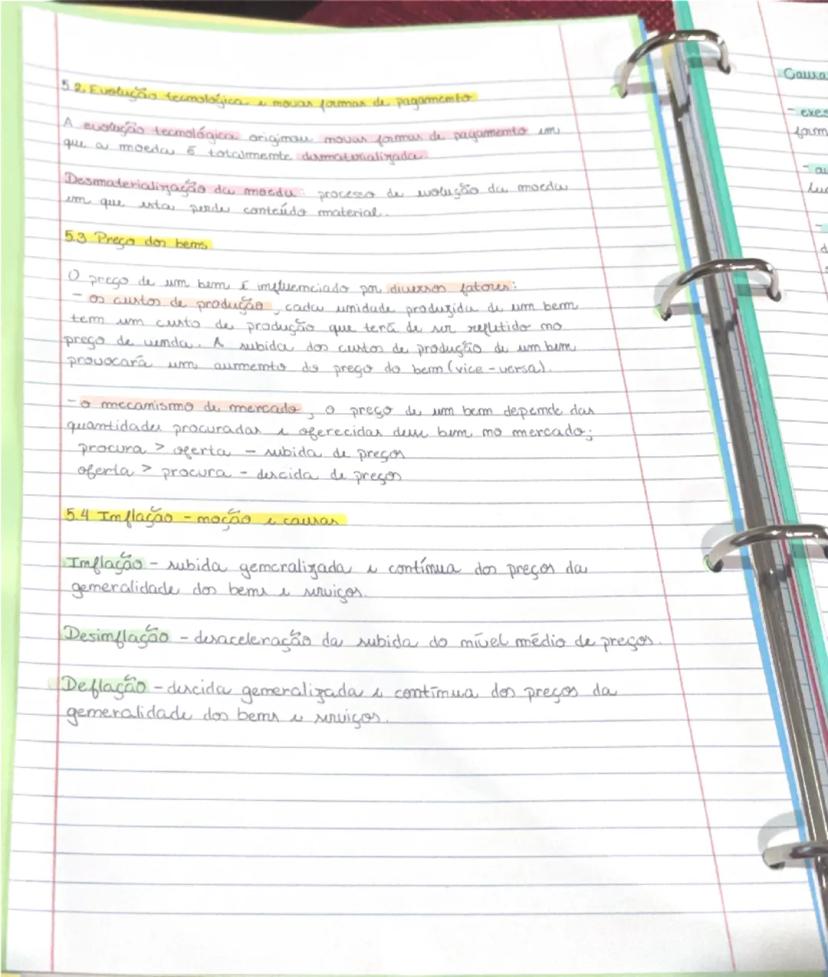 5.2. Evolução tecnológica e novas formas de pagamento
A evolução tecnológica originou novas formas de pagamento em
que a moeda é totalmente desmaterializada.
Desmaterialização da moeda: processo de evolução da moeda
em que esta perde conteúdo material.
5.3 Preço dos bens
O preço de um bem é influenciado por diversos fatores:
- os custos de produção, cada unidade produzida de um bem
tem um custo de produção que terá de ser refletido no
preço de venda. A subida dos custos de produção de um bem
provocará um aumento do preço do bem (vice-versa).
- o mecanismo de mercado, o preço de um bem depende das
quantidades procuradas e oferecidas desse bem no mercado;
procura > oferta - subida de preços
oferta > procura - descida de preços
5.4 Inflação - noção e causas
Inflação - subida generalizada e contínua dos preços da
generalidade dos bens e serviços.
Desinflação - desaceleração da subida do nível médio de preços.
Deflação - descida generalizada e contínua dos preços da
generalidade dos bens e serviços.